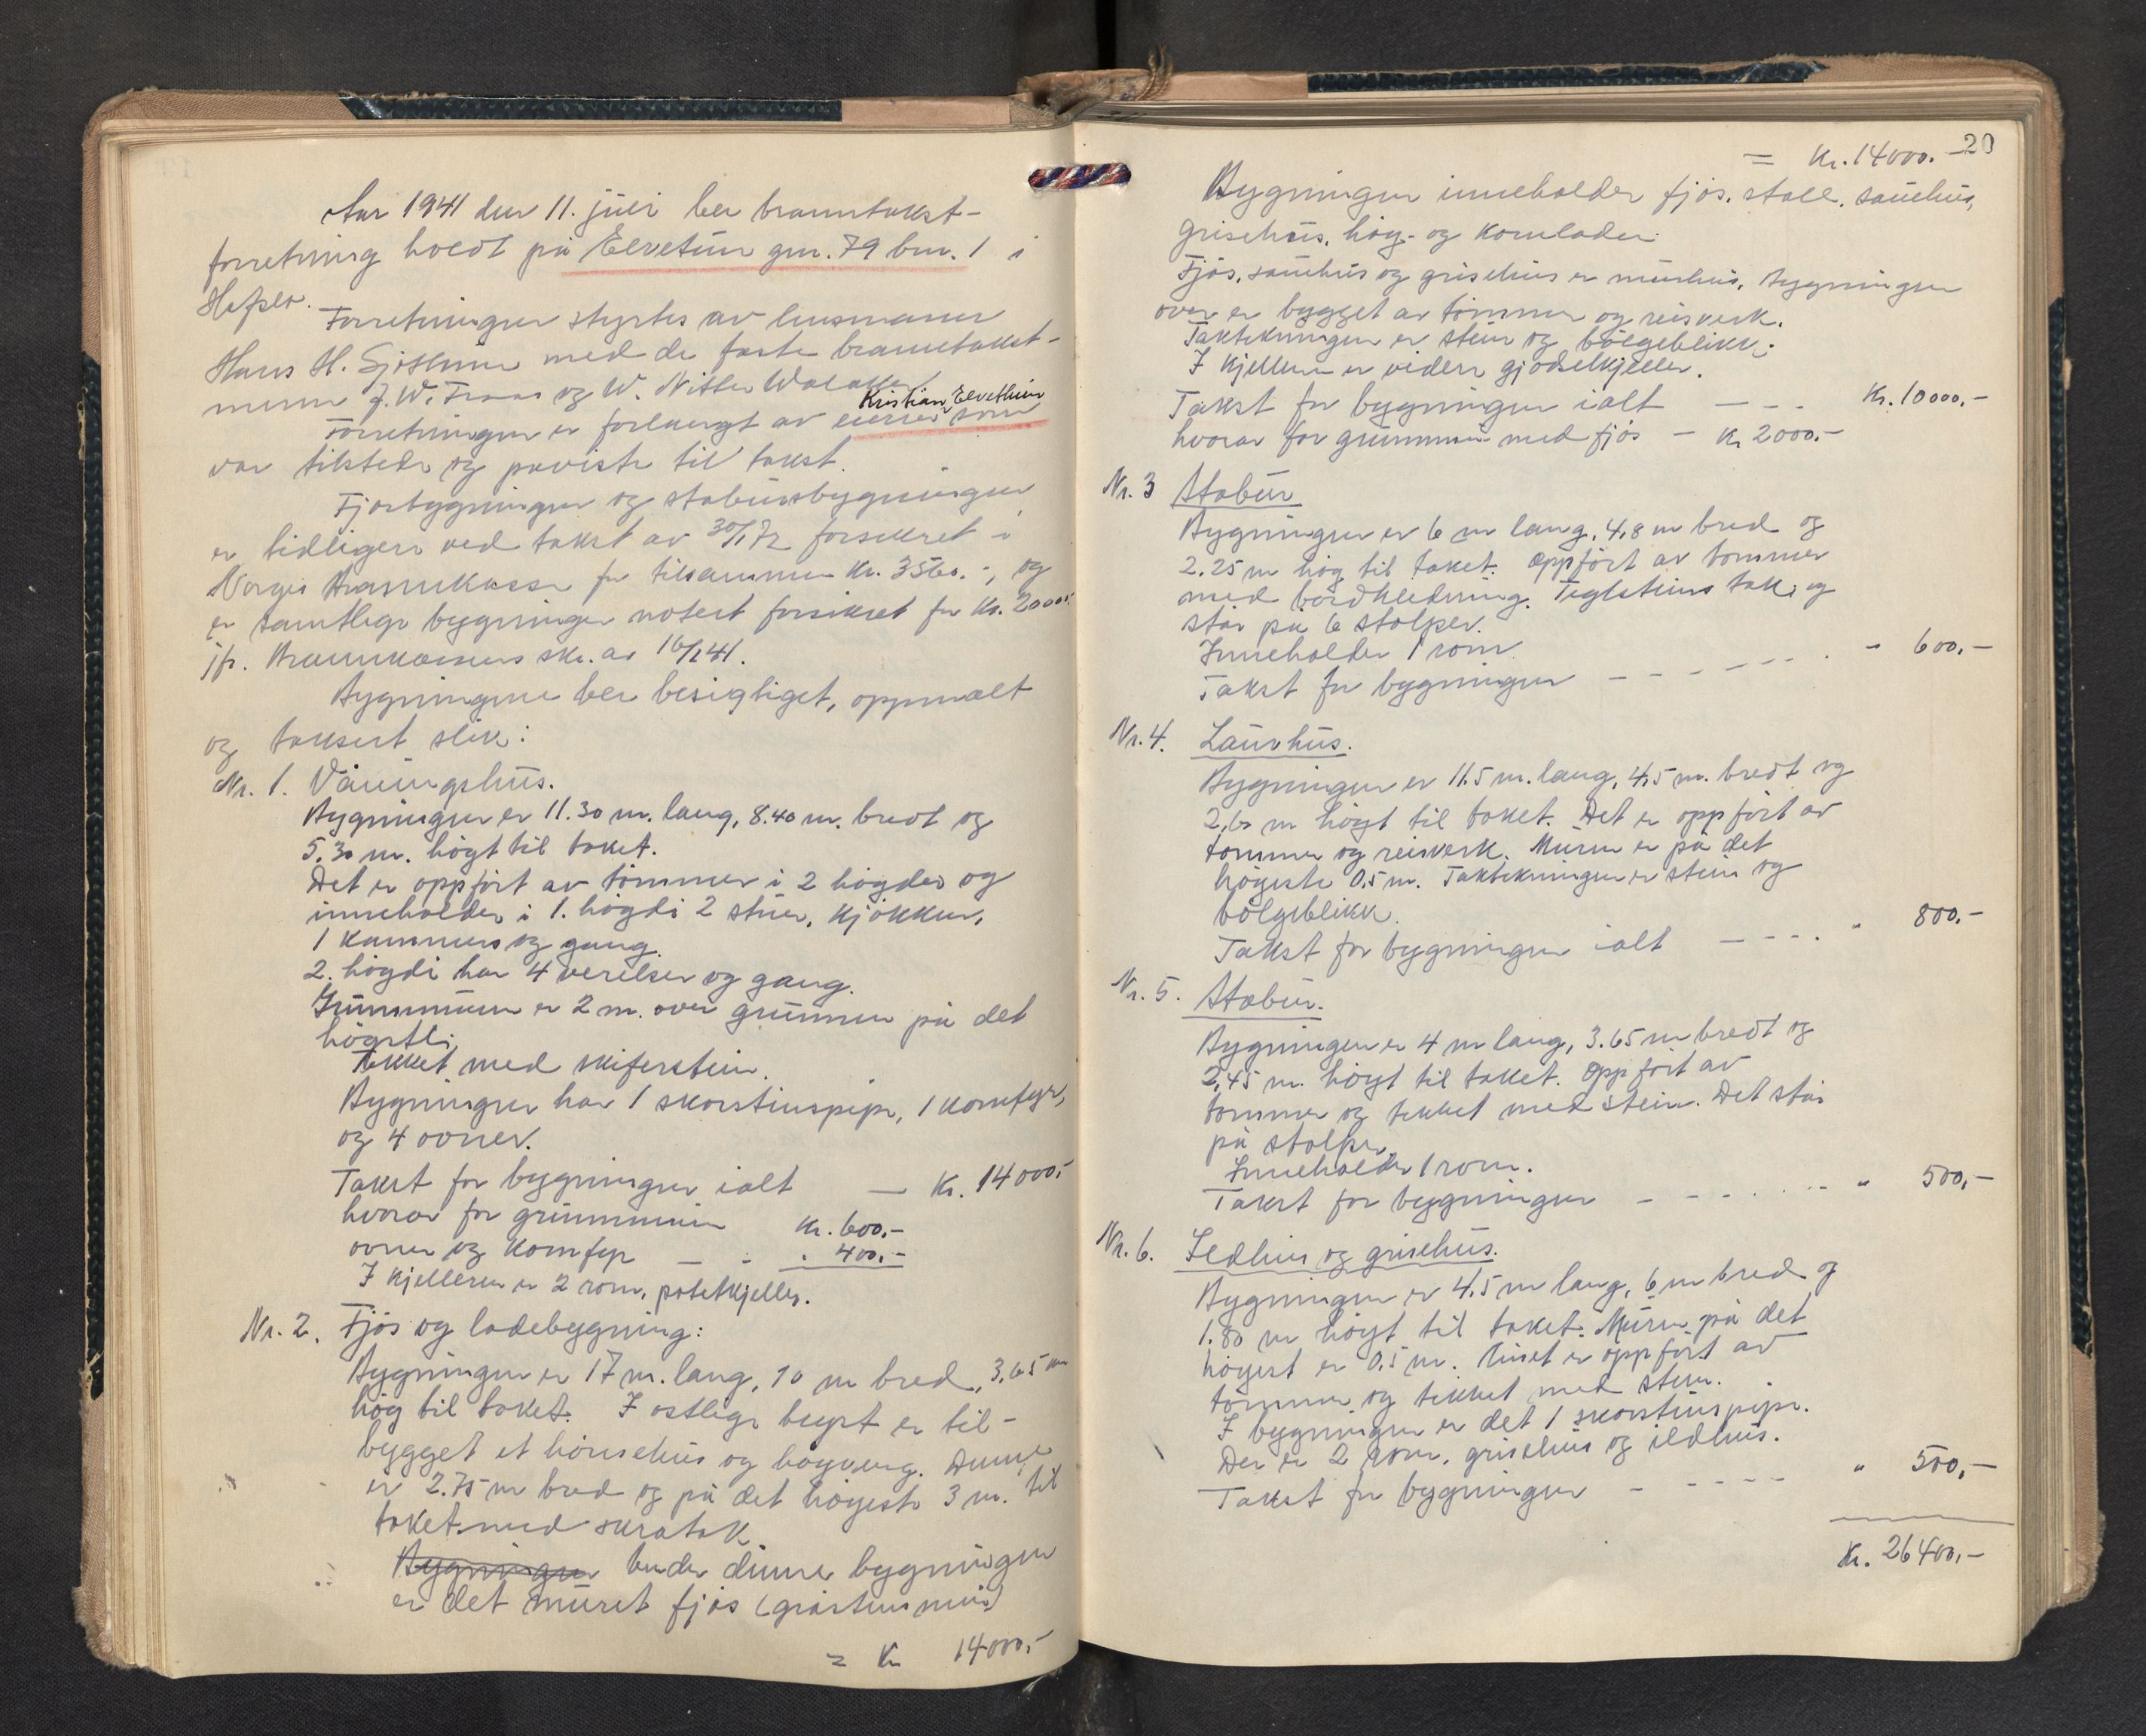 Aar 1941 den 11. juli ble branntakst-
forretning holdt på Elvetun gnr. 79 bnr. 1 i
Hafslo.
Forretningen styrtes av lensmann
Hans H. Sjøthun med de faste branntakst-
menn J. W. Fraas og W. Nitter Walaker
Kristian Elvethun
Forretningen er forlangt av eieren som
var tilstede og paviste til takst.
Fjosbygningen og stabursbygningen
er tidligere ved takst av 30/1 72 forsikret i
Norges Brannkasse for tilsammen Kr. 3560.-, og
er samtlige bygninger notert forsikret for Kr. 20000.-
jfr. Brannkassens skr. av 16/1 41.
Bygningene ble besigtiget, oppmalt
og taksert slik:
Nr. 1. Våningshus.
Bygningen er 11.30 m. lang, 8.40 m. bredt og
5.30 m. högt til taket.
Det er oppfört av tömmer i 2 högder og
inneholder i 1. högdi 2 stuer, kjökken,
1 kammers og gang.
2. högdi har 4 verelser og gang.
Grunnmuren er 2 m. over grunnen på det
högste.
Tekket med skiferstein.
Bygningen har 1 skorstinspipe, 1 komfyr,
og 4 ovner.
Takst for bygningen ialt — Kr. 14000.-
hvorav for grunnmuren Kr. 600.-
ovner og komfyr — - . 400.-
I kjelleren er 2 rom, potetkjeller.
Nr. 2. Fjös og ladebygning:
Bygningen er 17 m. lang, 10 m bred, 3.65 m
hög til taket. I ostlige bust er til-
bygget et hönsehus og höyveng. Denne
er 2.75 m bred og på det högeste 3 m. til
taket med skratak.
Bygningen Under denne bygningen
er det muret fjös (gråsteins mur)
= Kr 14000.-
20
= Kr. 14000.-
Bygningen inneholder fjös, stall, sauehus,
grisehus, höy- og kornlader.
Fjös, sauehus og grisehus er murhus, bygningen
over er bygget av tömmer og reisverk.
Taktekningen er stein og bölgeblikk.
I kjelleren er videre gjödselkjeller.
Takst for bygningen ialt — - - Kr. 10000.-
hvorav for grunnmur med fjös - Kr 2000.-
Nr. 3 Stabur
Bygningen er 6 m lang, 4,8 m bred og
2.25 m hög til taket. Oppfört av tömmer
med bordkledning. Teglsteins tak og
står på 6 stolper.
Inneholder 1 rom.
Takst for bygningen - - - - - - " 600.-
Nr. 4. Lauvhus.
Bygningen er 11.5 m. lang, 4,5 m. bredt og
2,60 m högt til taket. Det er oppfört av
tömmer og reisverk. Muren er på det
högeste 0.5 m. Taktekningen er stein og
bölgeblikk.
Takst for bygningen ialt - - - - " 800.-
Nr. 5. Stabur.
Bygningen er 4 m lang, 3.65 m bredt og
2,45 m. högt til taket. Oppfört av
tömmer og tekket med stein. Det står
på stolper.
Inneholder 1 rom.
Takst for bygningen - - - - - - " 500.-
Nr. 6. Ildhus og grisehus.
Bygningen er 4,5 m lang, 6 m bred og
1.80 m högt til taket. Muren på det
högest er 0.5 m. Huset er oppfört av
tömmer og tekket med stein.
I bygningen er det 1 skorstinspipe.
Der er 2 rom, grisehus og ildhus.
Takst for bygningen - - - - - " 500.-
Kr. 26400.-